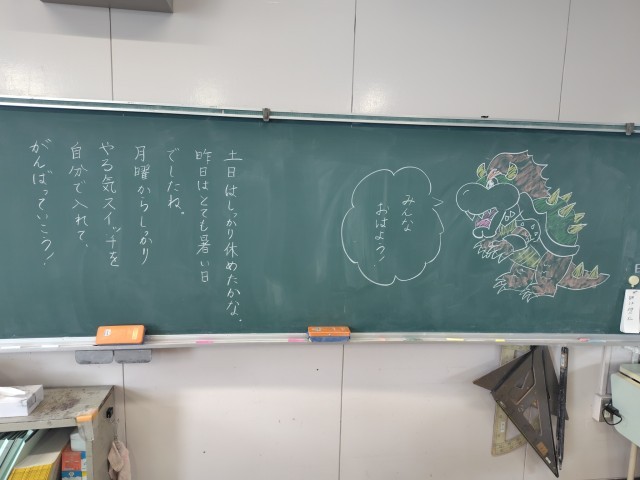 みんな
おはよう！
土日はしっかり休めたかな。
昨日はとても暑い日
でしたね。
月曜からしっかり
やる気スイッチを
自分で入れて、
がんばっていこう！